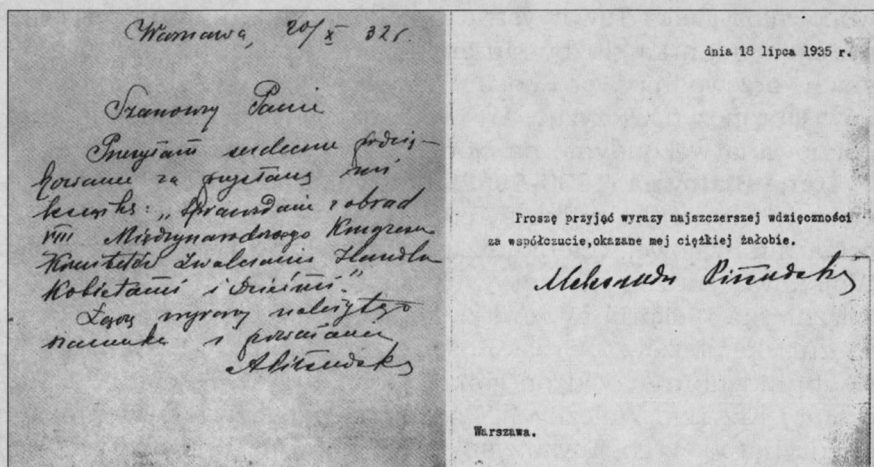 Warszawa, 20/X 32 r.
Szanowny Panie
Przesyłam serdeczne podzię-
kowanie za przysłaną mi
książkę: „Sprawozdanie z obrad
VIII Międzynarodowego Kongresu
Komitetów Zwalczania Handlu
Kobietami i Dziećmi."
Łączę wyrazy należytego
szacunku i poważania
APiłsudska
dnia 18 lipca 1935 r.
Proszę przyjąć wyrazy najszczerszej wdzięczności
za współczucie,okazane mej ciężkiej żałobie.
Aleksandra Piłsudska
Warszawa.